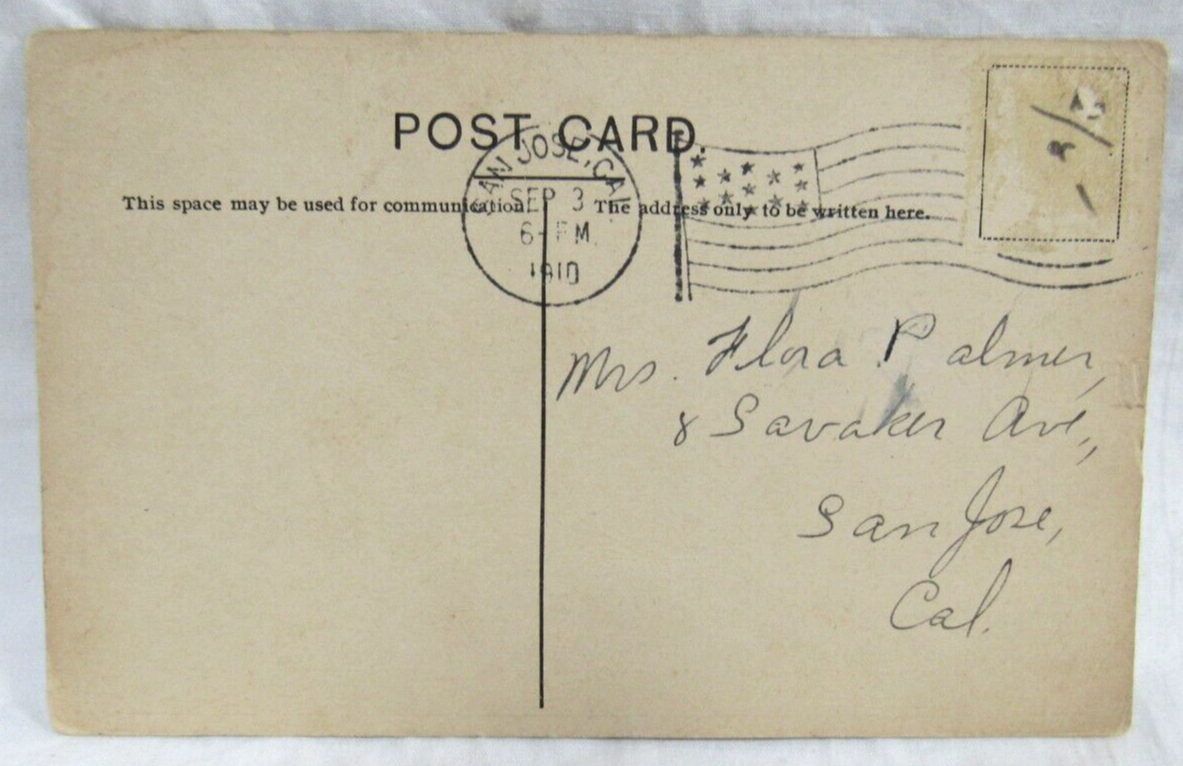 POST CARD.
SAN JOSE, CAL
SEP 3
6- PM
1910
This space may be used for communication
The address only to be written here.
Mrs. Flora Palmer,
8 Savaker Ave.,
San Jose,
Cal.